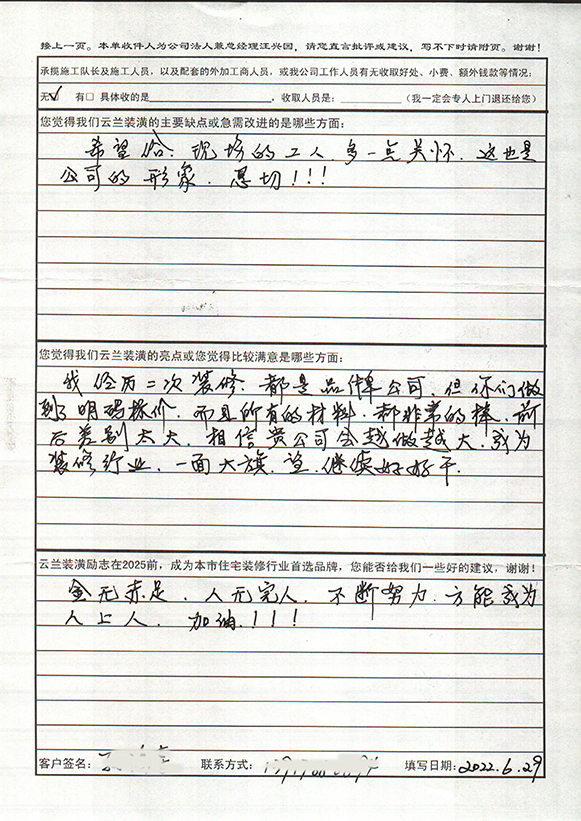 接上一页。本单收件人为公司法人兼总经理汪兴园，请您直言批评或建议，写不下时请附页。谢谢！
承揽施工队长及施工人员，以及配套的外加工商人员，或我公司工作人员有无收取好处、小费、额外钱款等情况：
无☑ 有□ 具体收的是____，收取人员是：____（我一定会专人上门退还给您）
您觉得我们云兰装潢的主要缺点或急需改进的是哪些方面：
希望给、现场的工人、多一点关怀、这也是
公司的形象、恳切！！！
您觉得我们云兰装潢的亮点或您觉得比较满意是哪些方面：
我经历二次装修、都是品牌公司、但你们做
到了明码标价、而且所有的材料、都非常的棒、前
后差别太大、相信贵公司会越做越大、成为
装修行业、一面大旗、望、继续好好干、
云兰装潢励志在2025前，成为本市住宅装修行业首选品牌，您能否给我们一些好的建议，谢谢！
金无赤足、人无完人、不断努力、方能成为
人上人、加油！！！
客户签名： 联系方式： 填写日期：2022.6.29